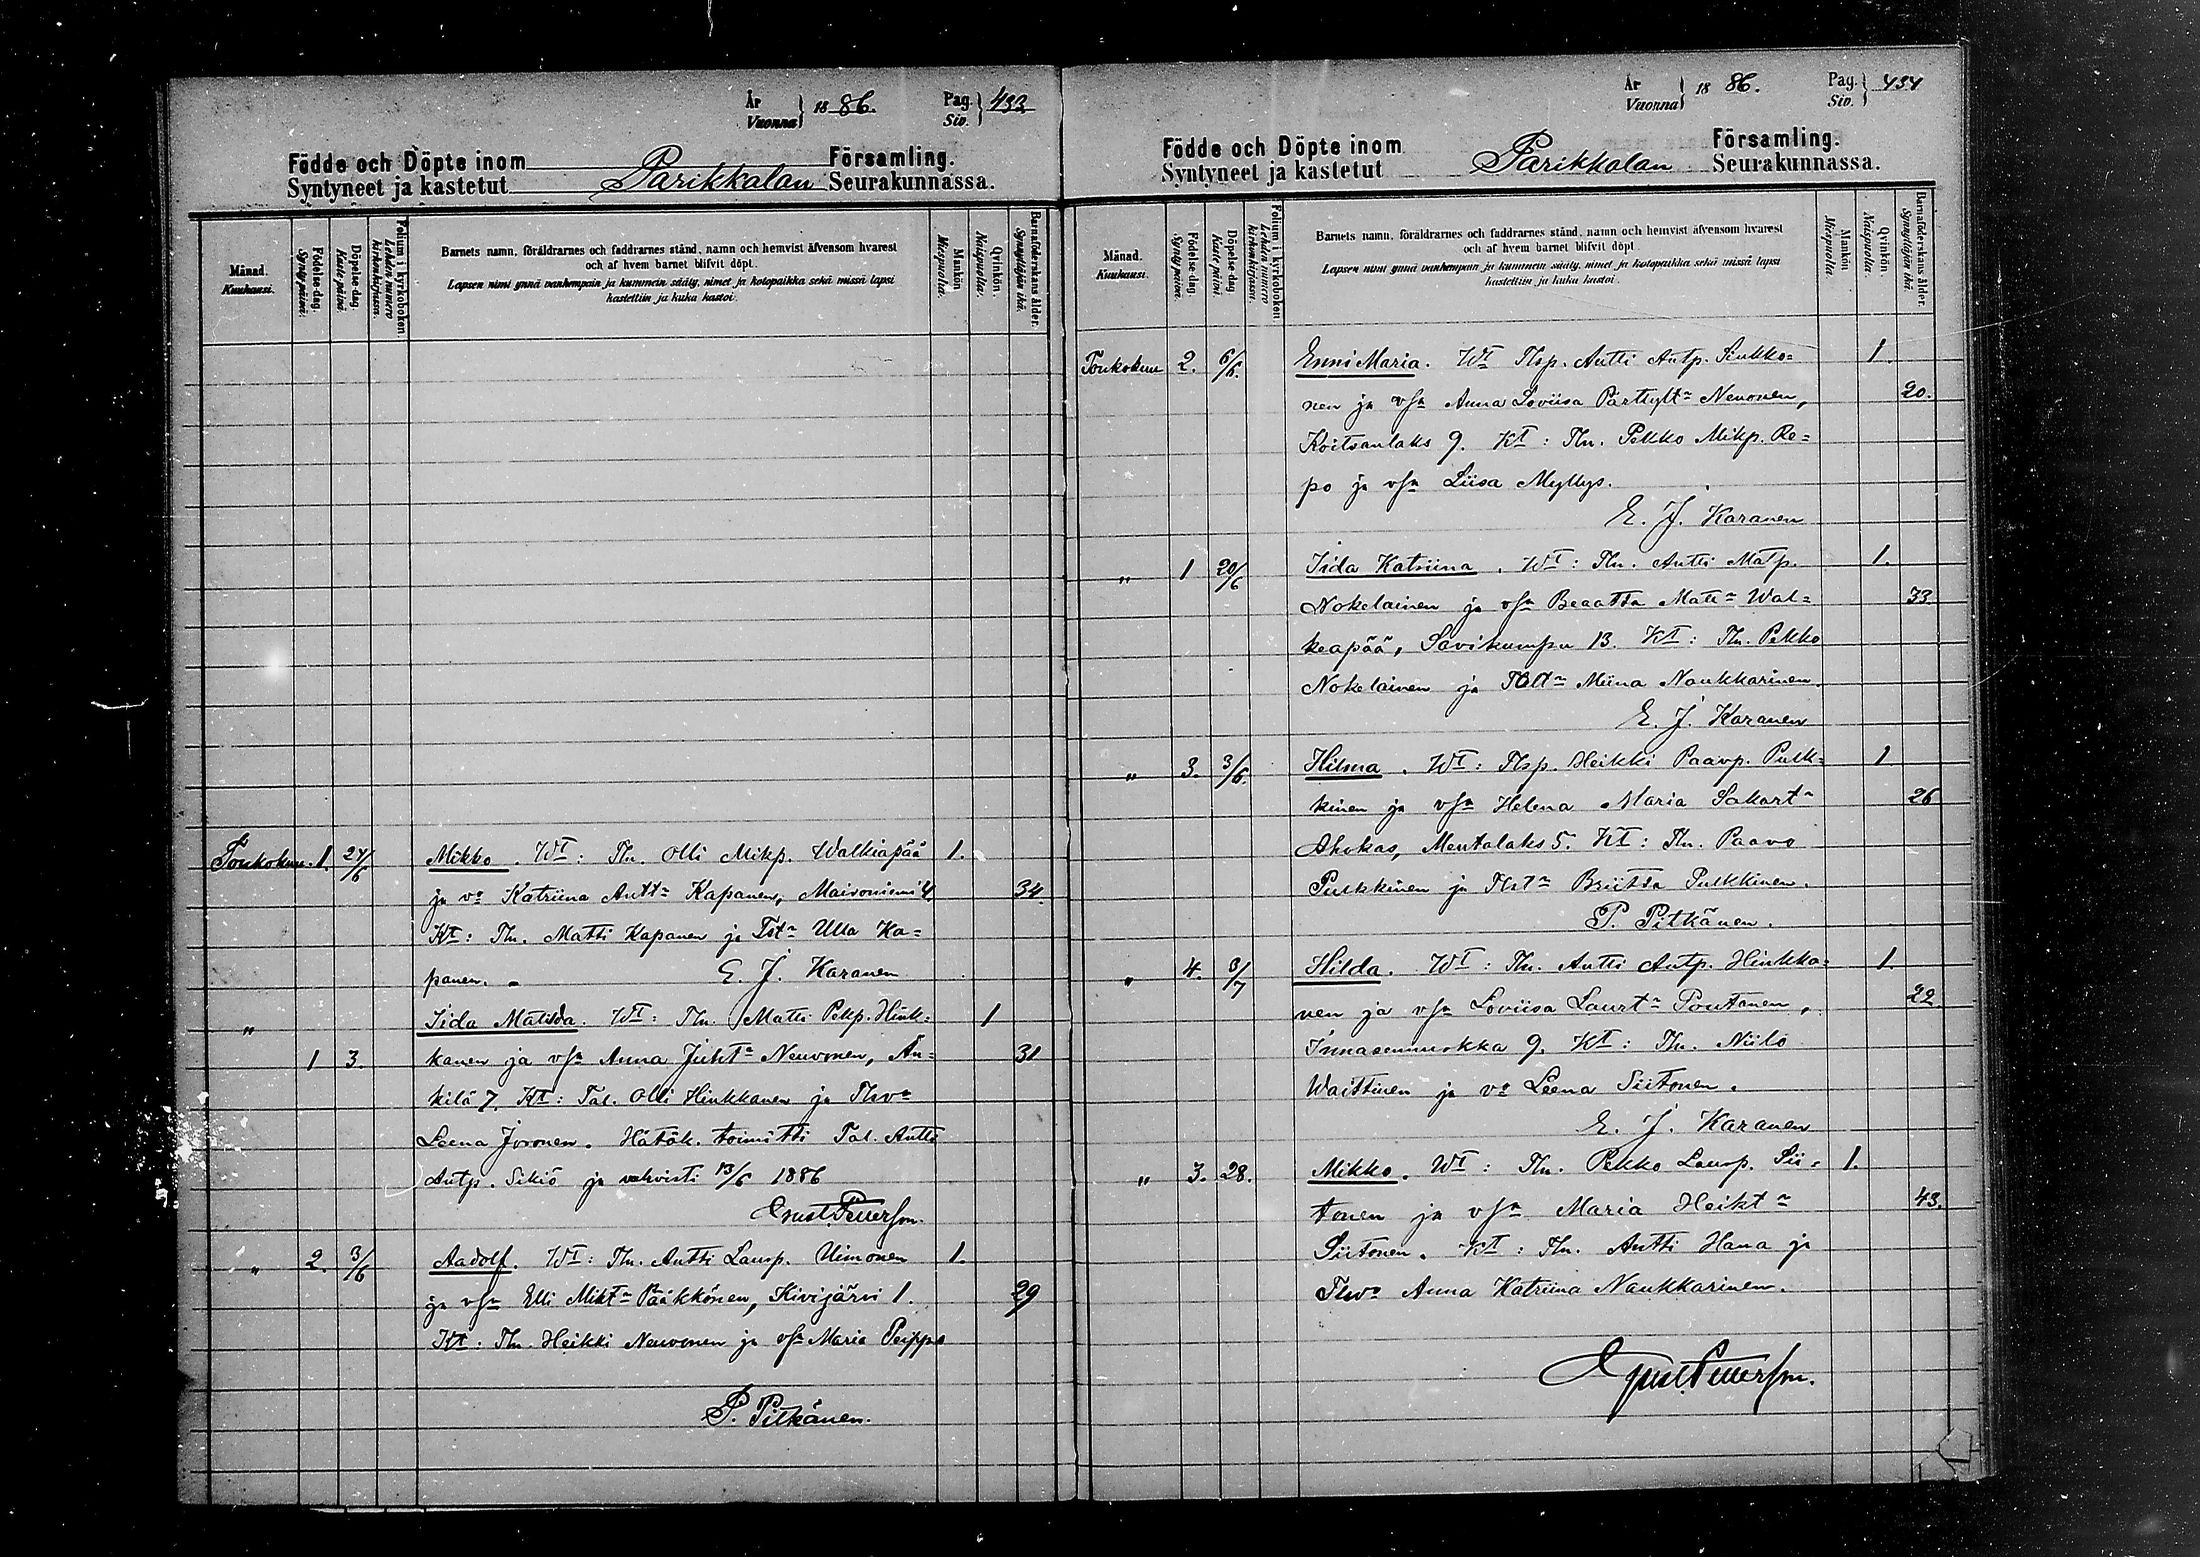 År
Vuonna } 1886.
Pag.
Siv. } 433
Födde och Döpte inom Församling.
Syntyneet ja kastetut Parikkalan Seurakunnassa.
Månad. Kuukausi.
Födelse-dag. Syntypäivä.
Döpelse-dag. Kastepäivä.
Folium i kyrkoboken. Lehden numero kirkonkirjassa.
Barnets namn, föräldrarnes och faddrarnes stånd, namn och hemvist äfvensom hvarest
och af hvem barnet blifvit döpt.
Lapsen nimi ynnä vanhempain ja kummein sääty, nimet ja kotopaikka sekä missä lapsi
kastettiin ja kuka kastoi.
Mankön Miespuolia.
Qvinkön. Naispuolia.
Barnaföderskans ålder. Synnyttäjän ikä.
Toukokuu. 1. 24/6 Mikko. Wt: Tln. Olli Mikp. Walkiapää 1.
ja vo Katriina Anttr Kapanen, Maironiemi 4. 34.
Kt: Tln. Matti Kapanen ja Tstr Ulla Ka=
panen. E. J. Karanen
" Iida Matilda. Wt: Tln. Matti Pekp. Hink= 1
1 3. kanen ja vsa Anna Juhtr Neuvonen, Än= 31
kilä 7. Kt: Tal. Olli Hinkkanen ja Tlvo
Leena Joronen. Hätäk. toimitti Tal. Antti
Antp. Sikiö ja vahvisti 13/6 1886
Ernst Petterson.
" 2. 3/6 Aadolf. Wt: Tln. Antti Laurp. Uimonen 1.
ja vsa Elli Miktr Pääkkönen, Kivijärvi 1. 29
Kt: Tln. Heikki Neuvonen ja vsa Maria Peippo
P. Pitkänen.
År
Vuonna } 1886.
Pag.
Siv. } 434
Födde och Döpte inom Församling.
Syntyneet ja kastetut Parikkalan Seurakunnassa.
Månad. Kuukausi.
Födelse-dag. Syntypäivä.
Döpelse-dag. Kastepäivä.
Folium i kyrkoboken. Lehden numero kirkonkirjassa.
Barnets namn, föräldrarnes och faddrarnes stånd, namn och hemvist äfvensom hvarest
och af hvem barnet blifvit döpt.
Lapsen nimi ynnä vanhempain ja kummein sääty, nimet ja kotopaikka sekä missä lapsi
kastettiin ja kuka kastoi.
Mankön Miespuolia.
Qvinkön. Naispuolia.
Barnaföderskans ålder. Synnyttäjän ikä.
Toukokuu 2. 6/6. Enni Maria. Wt Tlsp. Antti Antp. Sinkko= 1.
nen ja vsa Anna Loviisa Parttyltr Neuonen, 20.
Koitsanlaks 9. Kt: Tln. Pekko Mikp. Re=
po ja vsa Liisa Myllys.
E. J. Karanen
" 1 20/6 Iida Katriina. Wt: Tln. Antti Matp. 1.
Nokelainen ja vsa Beaatta Mattr Wal= 33
keapää, Savikumpu 13. Kt: Tln. Pekko
Nokelainen ja Tlltr Miina Naukkarinen.
E. J. Karanen
" 3. 3/6. Hilma. Wt: Tlsp. Heikki Paavp. Pulk= 1
kinen ja vsa Helena Maria Sakartr 26
Ahokas, Mentalaks 5. Kt: Tln. Paavo
Pulkkinen ja Tlstr Briitta Pulkkinen.
P. Pitkänen.
" 4. 3/7 Hilda. Wt: Tln. Antti Antp. Hinkka= 1.
nen ja vsa Loviisa Laurtr Poutanen, 22
Innasennurkka 9. Kt: Tln. Niilo
Waittinen ja vo Leena Siitonen.
E. J. Karanen
" 3. 28. Mikko. Wt: Tln. Pekko Laurp. Sii= 1.
tonen ja vsa Maria Heiktr 43.
Siitonen. Kt: Tln. Antti Hana ja
Tlvo Anna Katriina Naukkarinen.
Ernst Petterson.